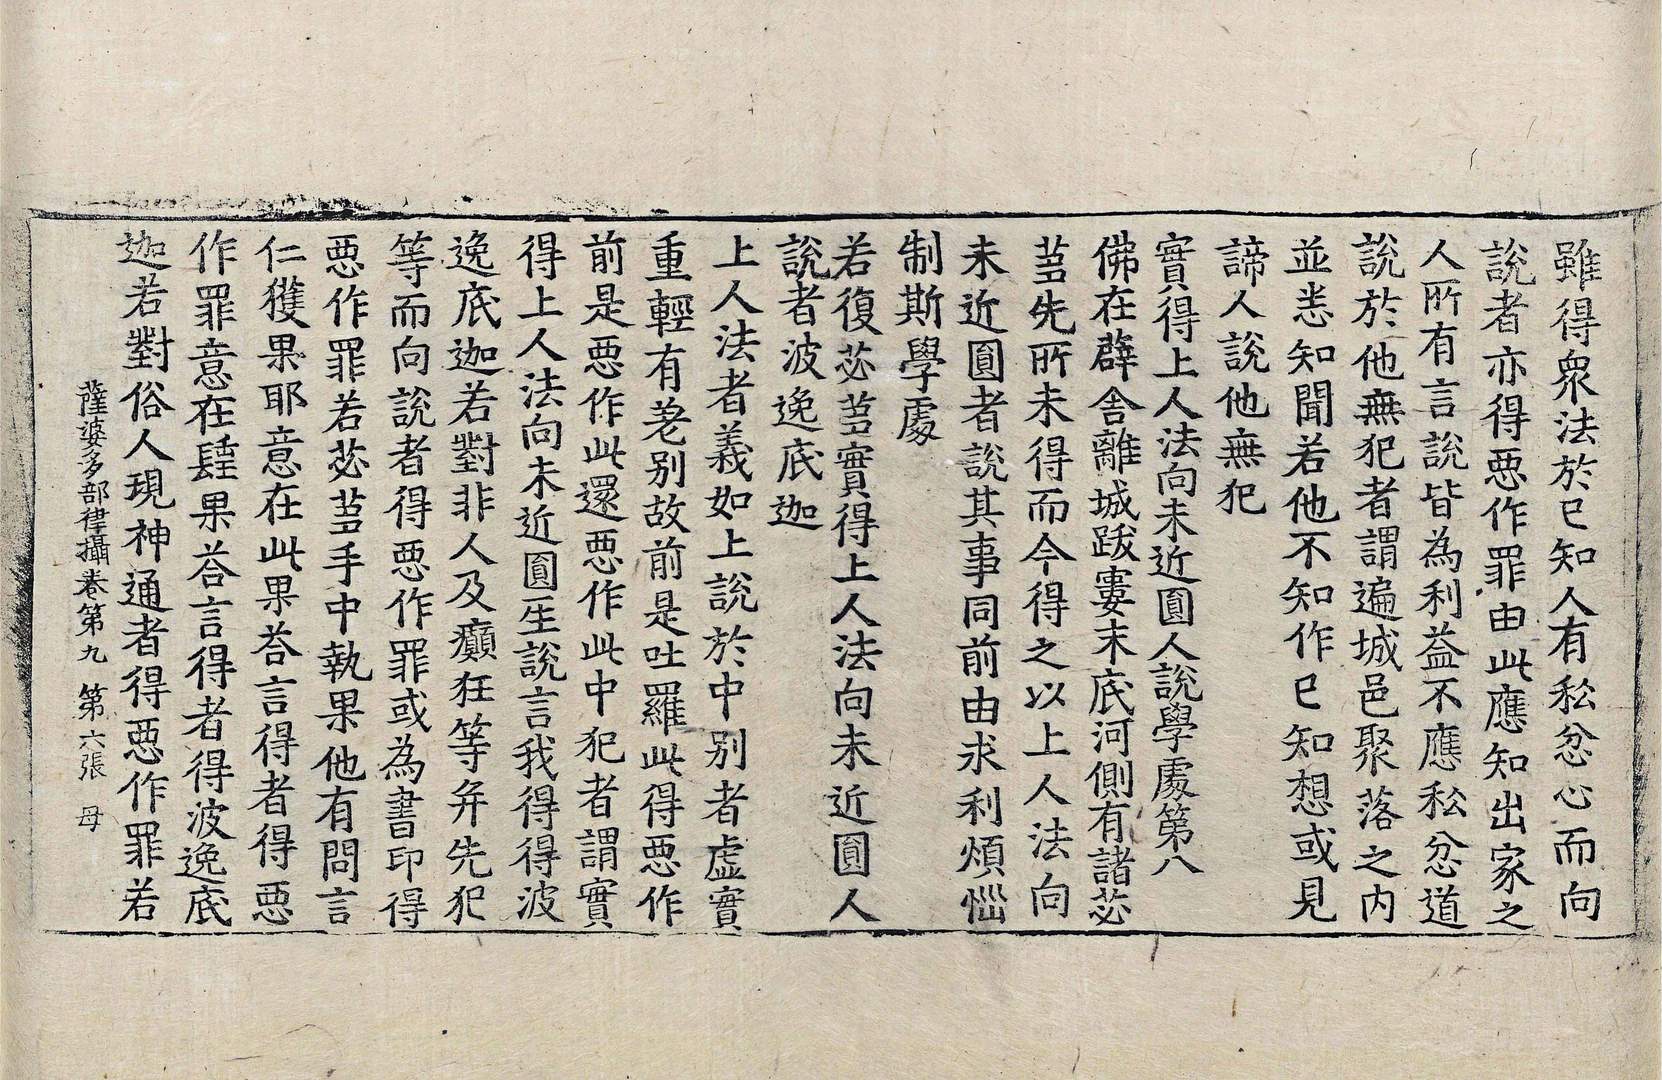 雖得衆法於已知人有私忿心而向
說者亦得惡作罪由此應知出家之
人所有言說皆為利益不應私忿道
說於他無犯者謂遍城邑聚落之內
並恙知聞若他不知作已知想或見
諦人說他無犯
實得上人法向未近圓人說學處第八
佛在薜舍離城跋窶末底河側有諸苾
蒭先所未得而今得之以上人法向
未近圓者說其事同前由求利煩惱
制斯學處
若復苾蒭實得上人法向未近圓人
說者波逸底迦
上人法者義如上說於中別者虛實
重輕有差別故前是吐羅此得惡作
前是惡作此還惡作此中犯者謂實
得上人法向未近圓生說言我得得波
逸底迦若對非人及癲狂等并先犯
等而向說者得惡作罪或為書印得
惡作罪若苾蒭手中執果他有問言
仁獲果耶意在此果荅言得者得惡
作罪意在肆果荅言得者得波逸底
迦若對俗人現神通者得惡作罪若
薩婆多部律攝卷第九 第六張 母